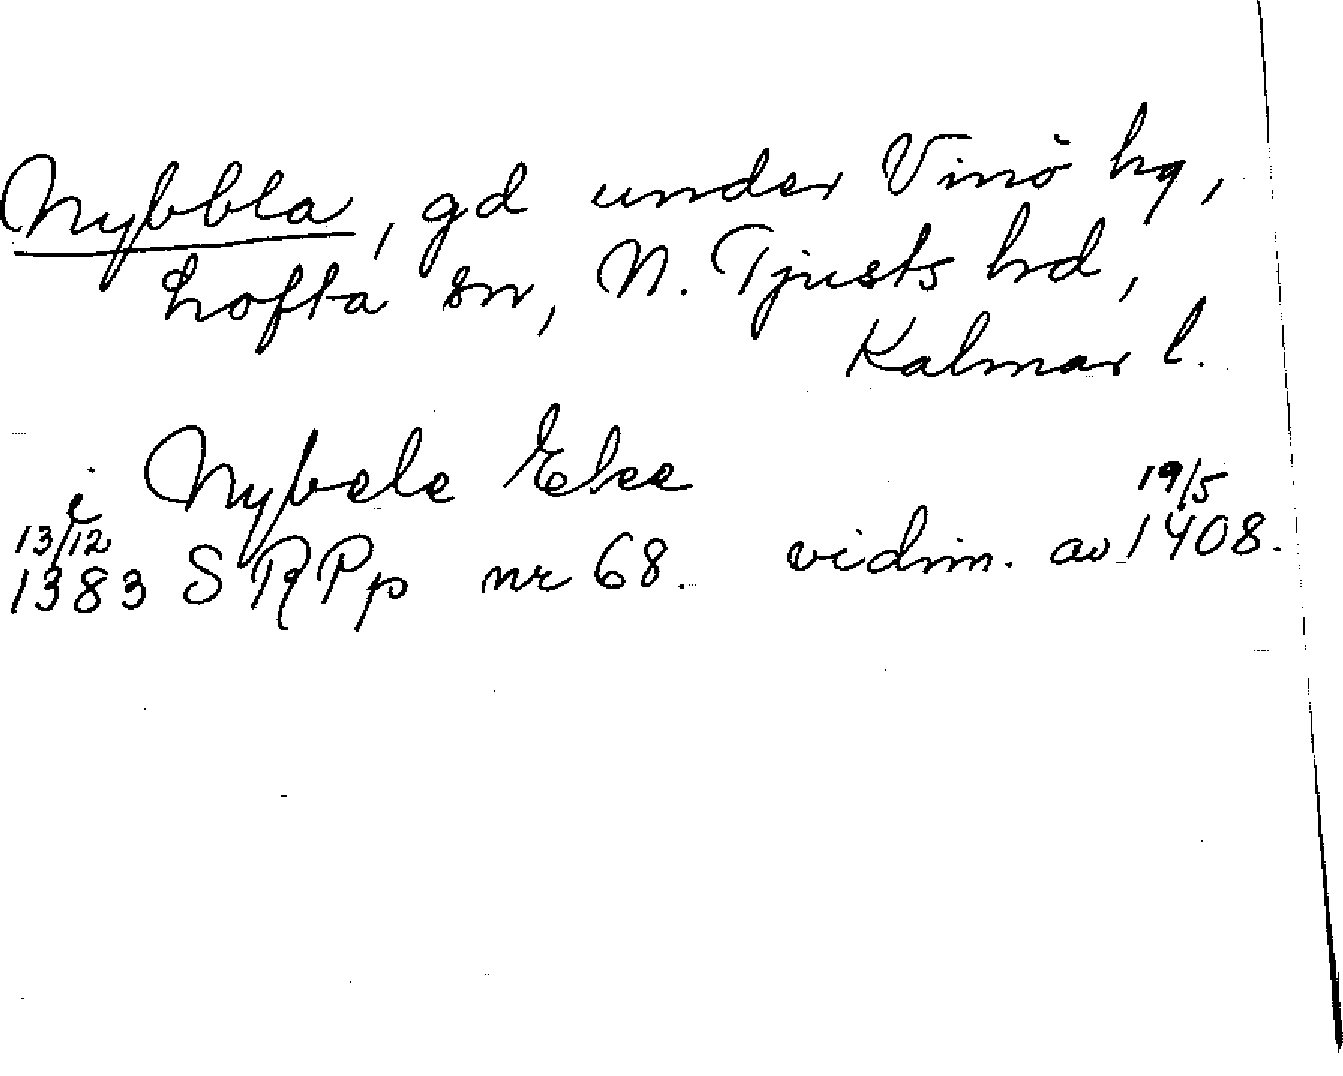 Nybbla, gd under Vinö hg,
Lofta sn, N. Tjusts hd,
Kalmar l.
i Nybele Ekee
13/12 1383 SRPp nr 68. vidim. av 19/5 1408.